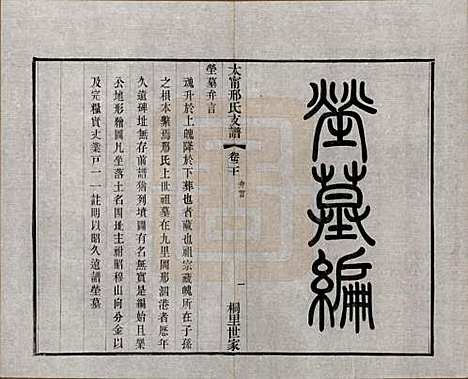 塋墓編
太甯邢氏支譜 卷二 弁言
塋墓弁言
魂升於上魄降於下葬也者藏也祖宗藏魄所在子孫
之根本繫焉邢氏上世祖墓在九里岡邢泗港者歷年
久遠碑址無存前譜猶列墳圖有名無實是編始去舉
公地形繪圖凡坐落土名四址主祔昭穆山向分金以
及完糧實丈業戶一一註明以昭久遠譜塋墓
一 桐里世家